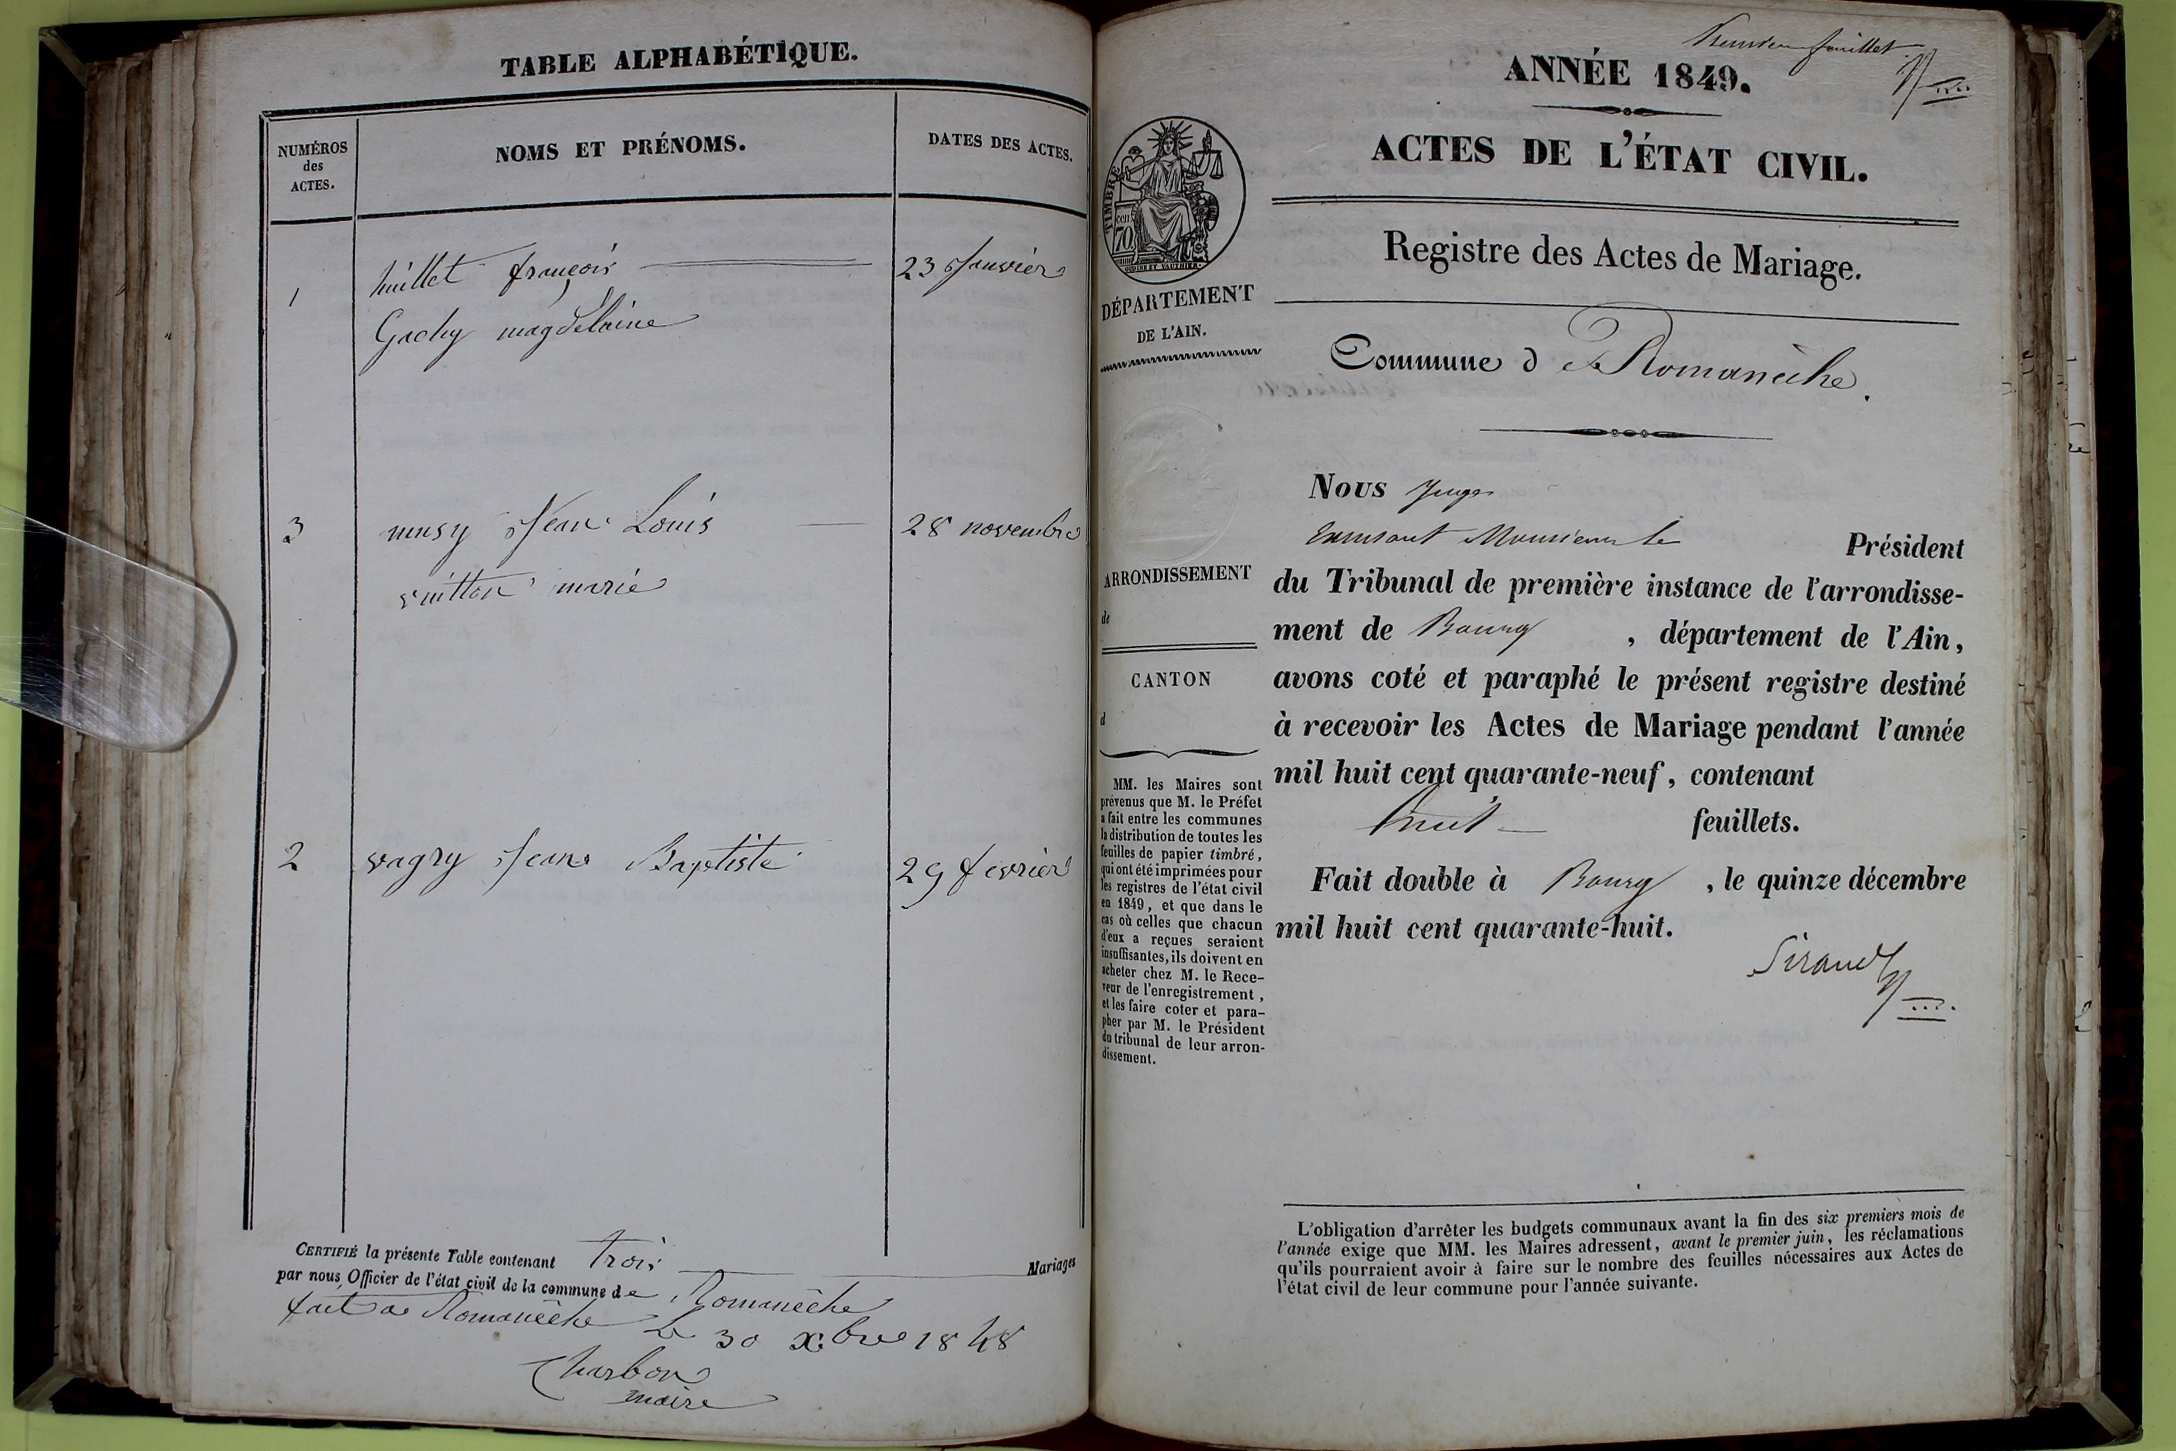 TABLE ALPHABÉTIQUE.
NUMÉROS
des
ACTES.
NOMS ET PRÉNOMS.
DATES DES ACTES.
1
huillet françois
23 Janvier
Gachy magdelaine
3
musy Jean Louis
28 novembre
vuitton marie
2
vagry Jean Baptiste
29 fevrier
CERTIFIÉ la présente Table contenant trois Mariages
par nous, Officier de l'état civil de la commune de Romanêche
fait a Romanêche le 30 xbre 1848
Charbon
maire
feuillet
ANNÉE 1849.
ACTES DE L'ÉTAT CIVIL.
Registre des Actes de Mariage.
Commune de Romanêche.
TIMBRE
70
cen
DÉPARTEMENT
DE L'AIN.
ARRONDISSEMENT
de
CANTON
d
MM. les Maires sont
prévenus que M. le Préfet
a fait entre les communes
la distribution de toutes les
feuilles de papier timbré,
qui ont été imprimées pour
les registres de l'état civil
en 1849, et que dans le
cas où celles que chacun
d'eux a reçues seraient
insuffisantes, ils doivent en
acheter chez M. le Rece-
veur de l'enregistrement,
et les faire coter et para-
pher par M. le Président
du tribunal de leur arron-
dissement.
Nous Juge
Monsieur le Président
du Tribunal de première instance de l'arrondisse-
ment de Bourg, département de l'Ain,
avons coté et paraphé le présent registre destiné
à recevoir les Actes de Mariage pendant l'année
mil huit cent quarante-neuf, contenant
huit feuillets.
Fait double à Bourg, le quinze décembre
mil huit cent quarante-huit.
Sirand
L'obligation d'arrêter les budgets communaux avant la fin des six premiers mois de
l'année exige que MM. les Maires adressent, avant le premier juin, les réclamations
qu'ils pourraient avoir à faire sur le nombre des feuilles nécessaires aux Actes de
l'état civil de leur commune pour l'année suivante.